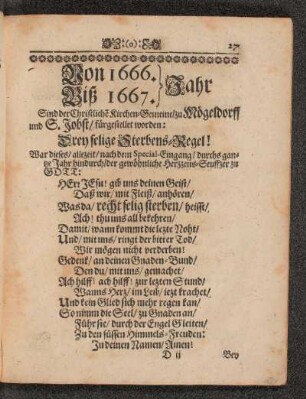 :(o): 27
Von 1666. } Jahr
Biß 1667.
Sind der Christlichē Kirchen-Gemeine/zu Mögeldorff
und S. Jobst/ fürgestellet worden:
Drey selige Sterbens-Regel!
War dieses/ allezeit/ nach dem Special-Eingang/ durchs gan-
tze Jahr hindurch/ der gewöhnliche Hertzens-Seufftzer zu
GOTT:
HErr JEsu! gib uns deinen Geist/
Daß wir/ mit Fleiß/ anhören/
Was da/ recht selig sterben/ heisst/
Ach! thu uns all bekehren/
Damit/ wann kommt die letzte Noht/
Und/ mit uns/ ringt der bitter Tod/
Wir mögen nicht verderben!
Gedenk/ an deinen Gnaden-Bund/
Den du/ mit uns/ gemachet/
Ach hilff/ ach hilff/ zur letzten Stund/
Wanns Hertz/ im Leib/ jetzt krachet/
Und kein Glied sich mehr regen kan/
So nimm die Seel/ zu Gnaden an/
Führ sie/ durch der Engel Gleiten/
Zu den süssen Himmels-Freuden:
In deinen Namen/ Amen!
D ij Bey